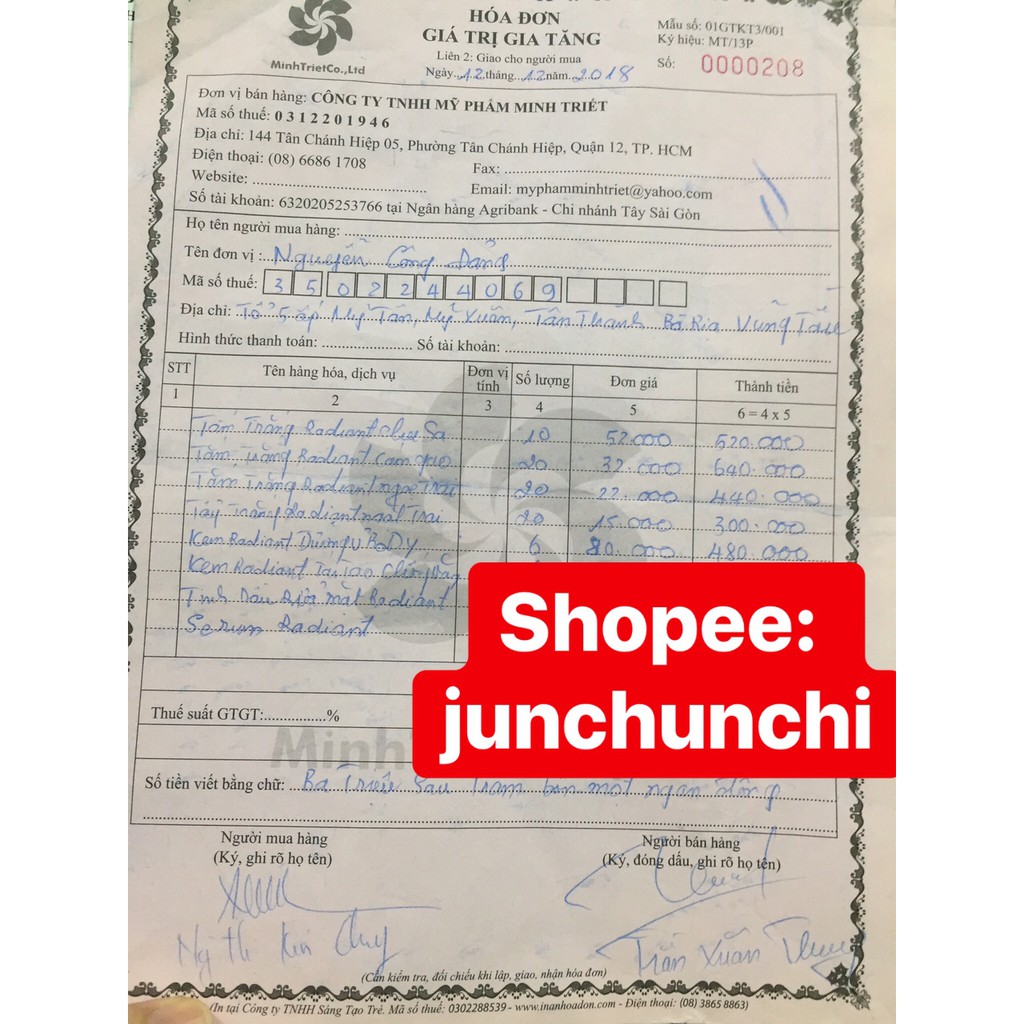 HÓA ĐƠN
GIÁ TRỊ GIA TĂNG
Liên 2: Giao cho người mua
Ngày 12 tháng 12 năm 2018
Mẫu số: 01GTKT3/001
Ký hiệu: MT/13P
Số: 0000208
MinhTrietCo.,Ltd
Đơn vị bán hàng: CÔNG TY TNHH MỸ PHẨM MINH TRIẾT
Mã số thuế: 0312201946
Địa chỉ: 144 Tân Chánh Hiệp 05, Phường Tân Chánh Hiệp, Quận 12, TP. HCM
Điện thoại: (08) 6686 1708 Fax:
Website: Email: myphamminhtriet@yahoo.com
Số tài khoản: 6320205253766 tại Ngân hàng Agribank - Chi nhánh Tây Sài Gòn
Họ tên người mua hàng:
Tên đơn vị: Nguyễn Công Dẩng
Mã số thuế: 3502244069
Địa chỉ: Tổ 5 ấp Mỹ Tân, Mỹ Xuân, Tân Thành Bà Rịa Vũng Tàu
Hình thức thanh toán: Số tài khoản:
STT Tên hàng hóa, dịch vụ Đơn vị tính Số lượng Đơn giá Thành tiền
1 2 3 4 5 6 = 4 x 5
Tắm Trắng Radiant 10 52.000 520.000
Tắm Trắng Radiant Cám gạo 20 32.000 640.000
Tắm Trắng Radiant ngọc Trai 20 22.000 440.000
Tẩy Trắng Radiant Trai 20 15.000 300.000
Kem Radiant Dưỡng BODY 6 80.000 480.000
Kem Radiant Tái Tạo
Tinh Dầu Rửa mặt Radiant
Serum Radiant
Shopee:
junchunchi
Thuế suất GTGT: %
Minh
Số tiền viết bằng chữ: Ba Triệu Sáu Trăm bốn mốt ngàn đồng
Người mua hàng Người bán hàng
(Ký, ghi rõ họ tên) (Ký, đóng dấu, ghi rõ họ tên)
Trần Xuân
(Cần kiểm tra, đối chiếu khi lập, giao, nhận hóa đơn)
(In tại Công ty TNHH Sáng Tạo Trẻ. Mã số thuế: 0302288539 - www.inanhoadon.com - Điện thoại: (08) 3865 8863)